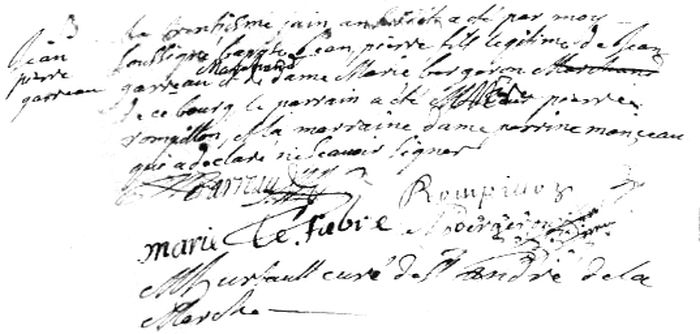 Jean
pierre
garreau
Le trentisme juin an a été par moy
soussigné baptisé Jean pierre fils legitime de Jean
garreau Marchand et de dame Marie bergeron Marchand
de ce bourg le parrain a été pierre
rompillon, La marraine dame perrine monceau
qui a declaré ne scavoir signer
Rompillon
marie Le Fabre Bergeron
curé de St André de la
Marche